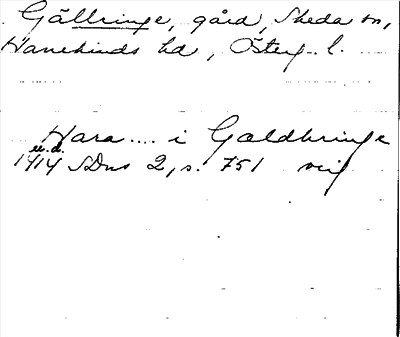 Gällringe, gård, Skeda sn,
Hanekinds hd, Österg. l.
Hara.... i Galdhringe
u.d.
1414 SDns 2, s. 751